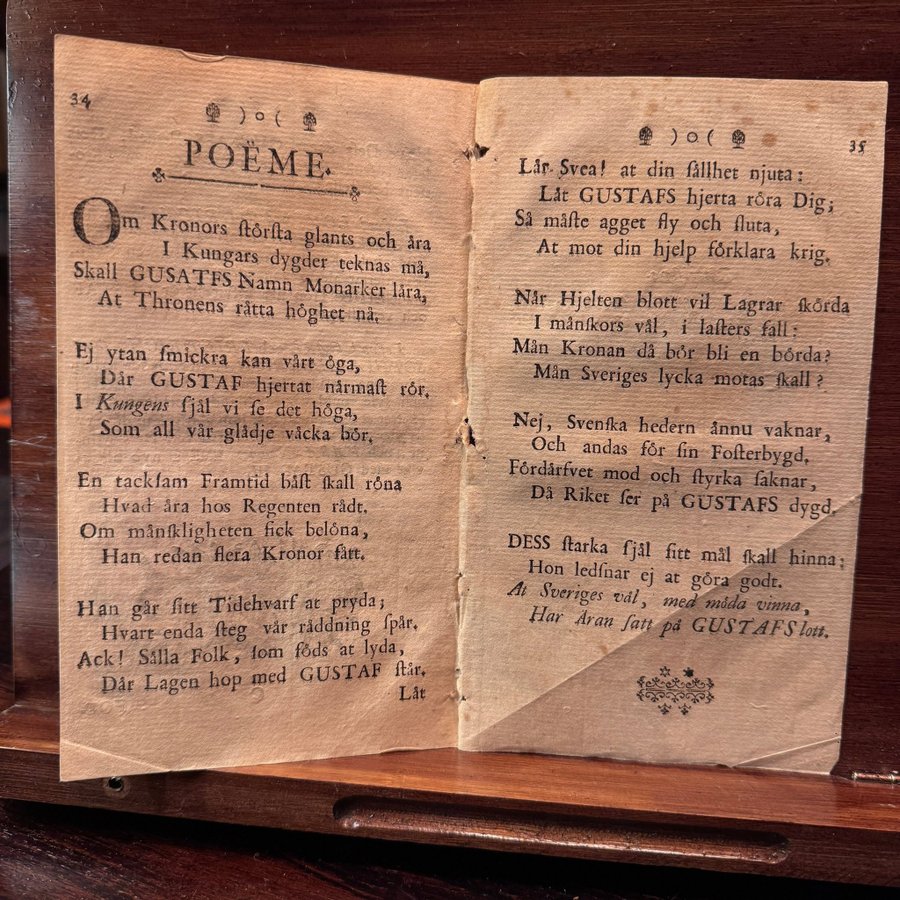 34
) o (
POËME.
Om Kronors ſtörſta glants och åra
I Kungars dygder teknas må,
Skall GUSATFS Namn Monarker låra,
At Thronens råtta höghet nå.
Ej ytan ſmickra kan vårt öga,
Dår GUSTAF hjertat nårmaſt rör.
I Kungens ſjål vi ſe det höga,
Som all vår glådje våcka bör.
En tackſam Framtid båſt ſkall röna
Hvad åra hos Regenten rådt.
Om månſkligheten fick belöna,
Han redan flera Kronor fått.
Han går ſitt Tidehvarf at pryda;
Hvart enda ſteg vår råddning ſpår.
Ack! Sålla Folk, ſom föds at lyda,
Dår Lagen hop med GUSTAF ſtår.
Låt
) o (
35
Lår Svea! at din ſållhet njuta:
Låt GUSTAFS hjerta röra Dig;
Så måſte agget fly och ſluta,
At mot din hjelp förklara krig.
Når Hjelten blott vil Lagrar ſkörda
I månſkors vål, i laſters fall:
Mån Kronan då bör bli en börda?
Mån Sveriges lycka motas ſkall?
Nej, Svenſka hedern ånnu vaknar,
Och andas för ſin Foſterbygd.
Fördårfvet mod och ſtyrka ſaknar,
Då Riket ſer på GUSTAFS dygd.
DESS ſtarka ſjål ſitt mål ſkall hinna;
Hon ledſnar ej at göra godt.
At Sveriges vål, med möda vinna,
Har Åran ſatt på GUSTAFS lott.